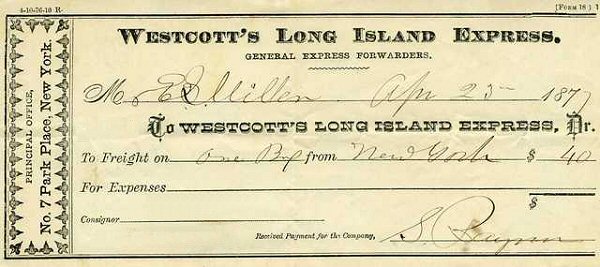 4-10-76-10 R-
[FORM 18] 1
PRINCIPAL OFFICE,
No. 7 Park Place, New York.
WESTCOTT'S LONG ISLAND EXPRESS.
GENERAL EXPRESS FORWARDERS.
Mr E Miller Apr 23 1877
To WESTCOTT'S LONG ISLAND EXPRESS, Dr.
To Freight on one Bx from New York $ 40
For Expenses
$
Consignor
Received Payment for the Company,
S.